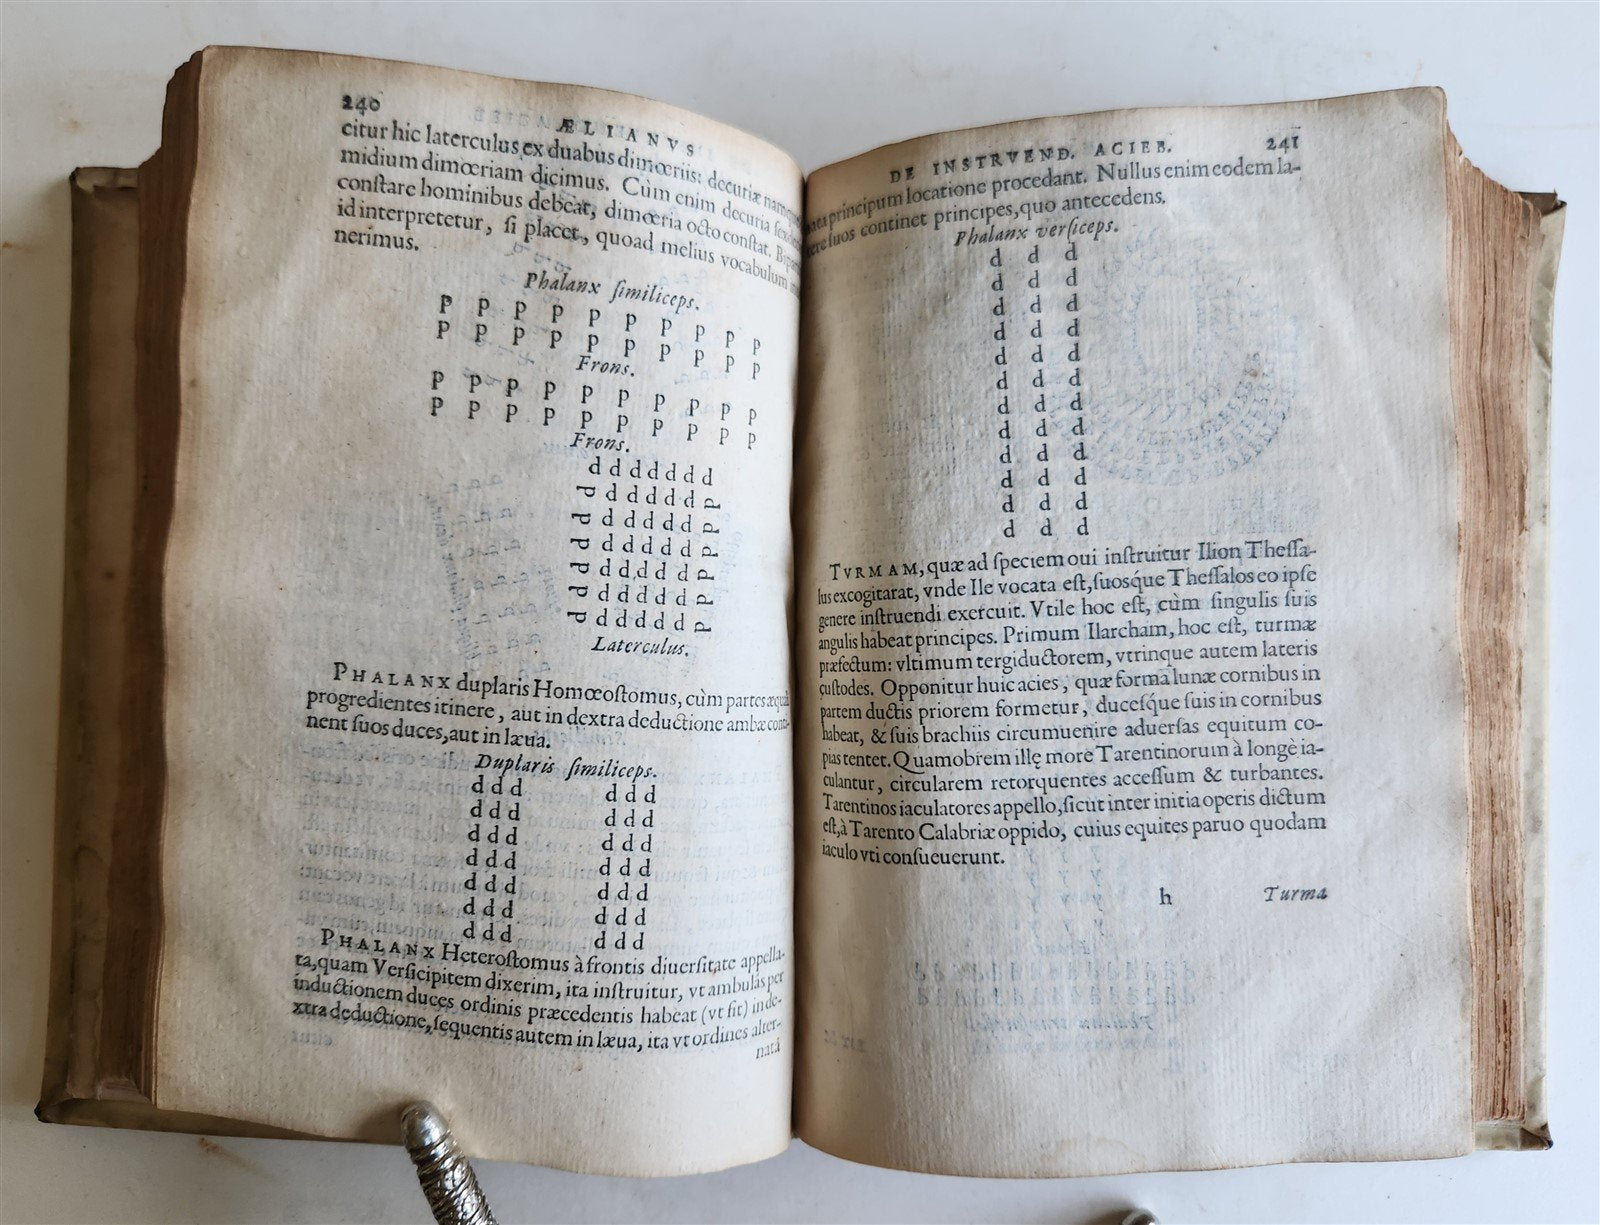 240
ÆLIANVS
citur hic laterculus ex duabus dimœriis: decuriæ namque
midium dimœriam dicimus. Cùm enim decuria
constare hominibus debeat, dimœria octo constat.
id interpretetur, si placet, quoad melius vocabulum
nerimus.
Phalanx similiceps.
p p p p p p p p p
p p p p p p p p p
Frons.
p p p p p p p p p
p p p p p p p p p
Frons.
d d d d d d d
d d d d d d d
d d d d d d d
d d d d d d d
d d d d d d d
d d d d d d d
d d d d d d d
Laterculus.
PHALANX duplaris Homœostomus, cùm partes æquâ
progredientes itinere, aut in dextra deductione ambæ conti-
nent suos duces, aut in læua.
Duplaris similiceps.
d d d d d d
d d d d d d
d d d d d d
d d d d d d
d d d d d d
d d d d d d
d d d d d d
PHALANX Heterostomus à frontis diuersitate appella-
ta, quam Versicipitem dixerim, ita instruitur, vt ambulás per
inductionem duces ordinis præcedentis habeat (vt fit) in de-
xtra deductione, sequentis autem in læua, ita vt ordines alter-
natá
DE INSTRVEND. ACIEB. 241
nata principum locatione procedant. Nullus enim eodem la-
tere suos continet principes, quo antecedens.
Phalanx versiceps.
d d d
d d d
d d d
d d d
d d d
d d d
d d d
d d d
d d d
d d d
d d d
d d d
TVRMAM, quæ ad speciem oui instruitur Ilion Thessa-
lus excogitarat, vnde Ile vocata est, suosque Thessalos eo ipse
genere instruendi exercuit. Vtile hoc est, cùm singulis suis
angulis habeat principes. Primum Ilarcham, hoc est, turmæ
præfectum: vltimum tergiductorem, vtrinque autem lateris
custodes. Opponitur huic acies, quæ forma lunæ cornibus in
partem ductis priorem formetur, ducesque suis in cornibus
habeat, & suis brachiis circumuenire aduersas equitum co-
pias tentet. Quamobrem illę more Tarentinorum à longè ia-
culantur, circularem retorquentes accessum & turbantes.
Tarentinos iaculatores appello, sicut inter initia operis dictum
est, à Tarento Calabriæ oppido, cuius equites paruo quodam
iaculo vti consueuerunt.
h Turma